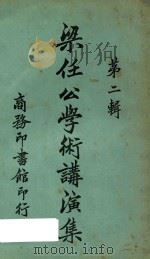 第二輯
梁任公學術講演集
商務印書館印行
www.duxiu.com